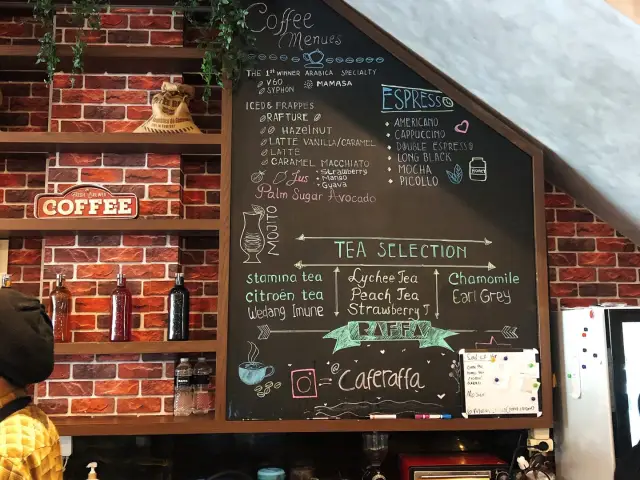 Coffee
Menues
THE 1st WINNER ARABICA SPECIALTY
V60
MAMASA
SYPHON
ICED & FRAPPES
RAFTURE
HAZELNUT
LATTE VANILLA/CARAMEL
LATTE
CARAMEL MACCHIATO
Jus
Strawberry
Mango
Guava
Palm Sugar Avocado
ESPRESSO
AMERICANO
CAPPUCCINO
DOUBLE ESPRESSO
LONG BLACK
MOCHA
PICOLLO
MOJITO
TEA SELECTION
Stamina tea
Citroën tea
Wedang Imune
Lychee Tea
Peach Tea
Strawberry T
Chamomile
Earl Grey
RAFFA
= @Caferaffa
COFFEE